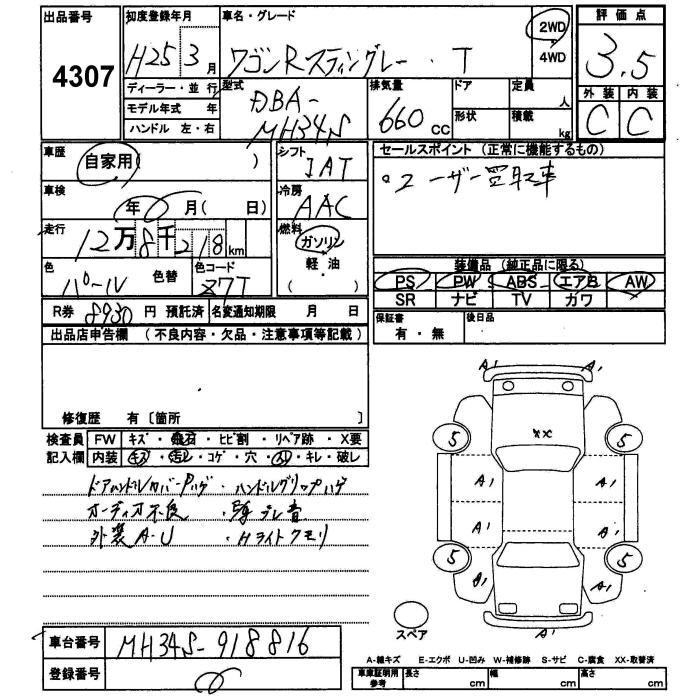 出品番号 4307
初度登録年月 H25 3月
車名・グレード ワゴンRスティングレー・T
2WD 4WD
評価点 3.5
外装 C 内装 C
ディーラー・並行
モデル年式 年
ハンドル 左・右
型式 DBA-MH34S
排気量 660cc
ドア 形状
定員 人
積載 kg
車歴 自家用( )
シフト IAT
セールスポイント(正常に機能するもの)
。ユーザー買取車
車検 年 月( 日)
冷房 AAC
走行 12万8千218km
燃料 ガソリン 軽・油 ( )
色 パール 色替
色コード Z7T
装備品(純正品に限る)
PS PW ABS エアB AW
SR ナビ TV カワ
R券 8930円 預託済 名変通知期限 月 日
保証書 有・無
後日品
出品店申告欄(不良内容・欠品・注意事項等記載)
修復歴 有〔箇所 〕
検査員記入欄
FW キズ・飛石・ヒビ割・リペア跡・X要
内装 キズ・汚レ・コゲ・穴・スレ・キレ・破レ
ドアハンドルカバーハゲ・ハンドルグリップハゲ
オーディオ不良・ブレ音
外装A・U・Hライトクモリ
車台番号 MH34S-918816
登録番号
A1 A1
XX
5 5
A1 A1
A1 A1
5 5
A1 A1
A1
スペア
A-線キズ E-エクボ U-凹み W-補修跡 S-サビ C-腐食 XX-取替済
車庫証明用参考 長さ cm 幅 cm 高さ cm